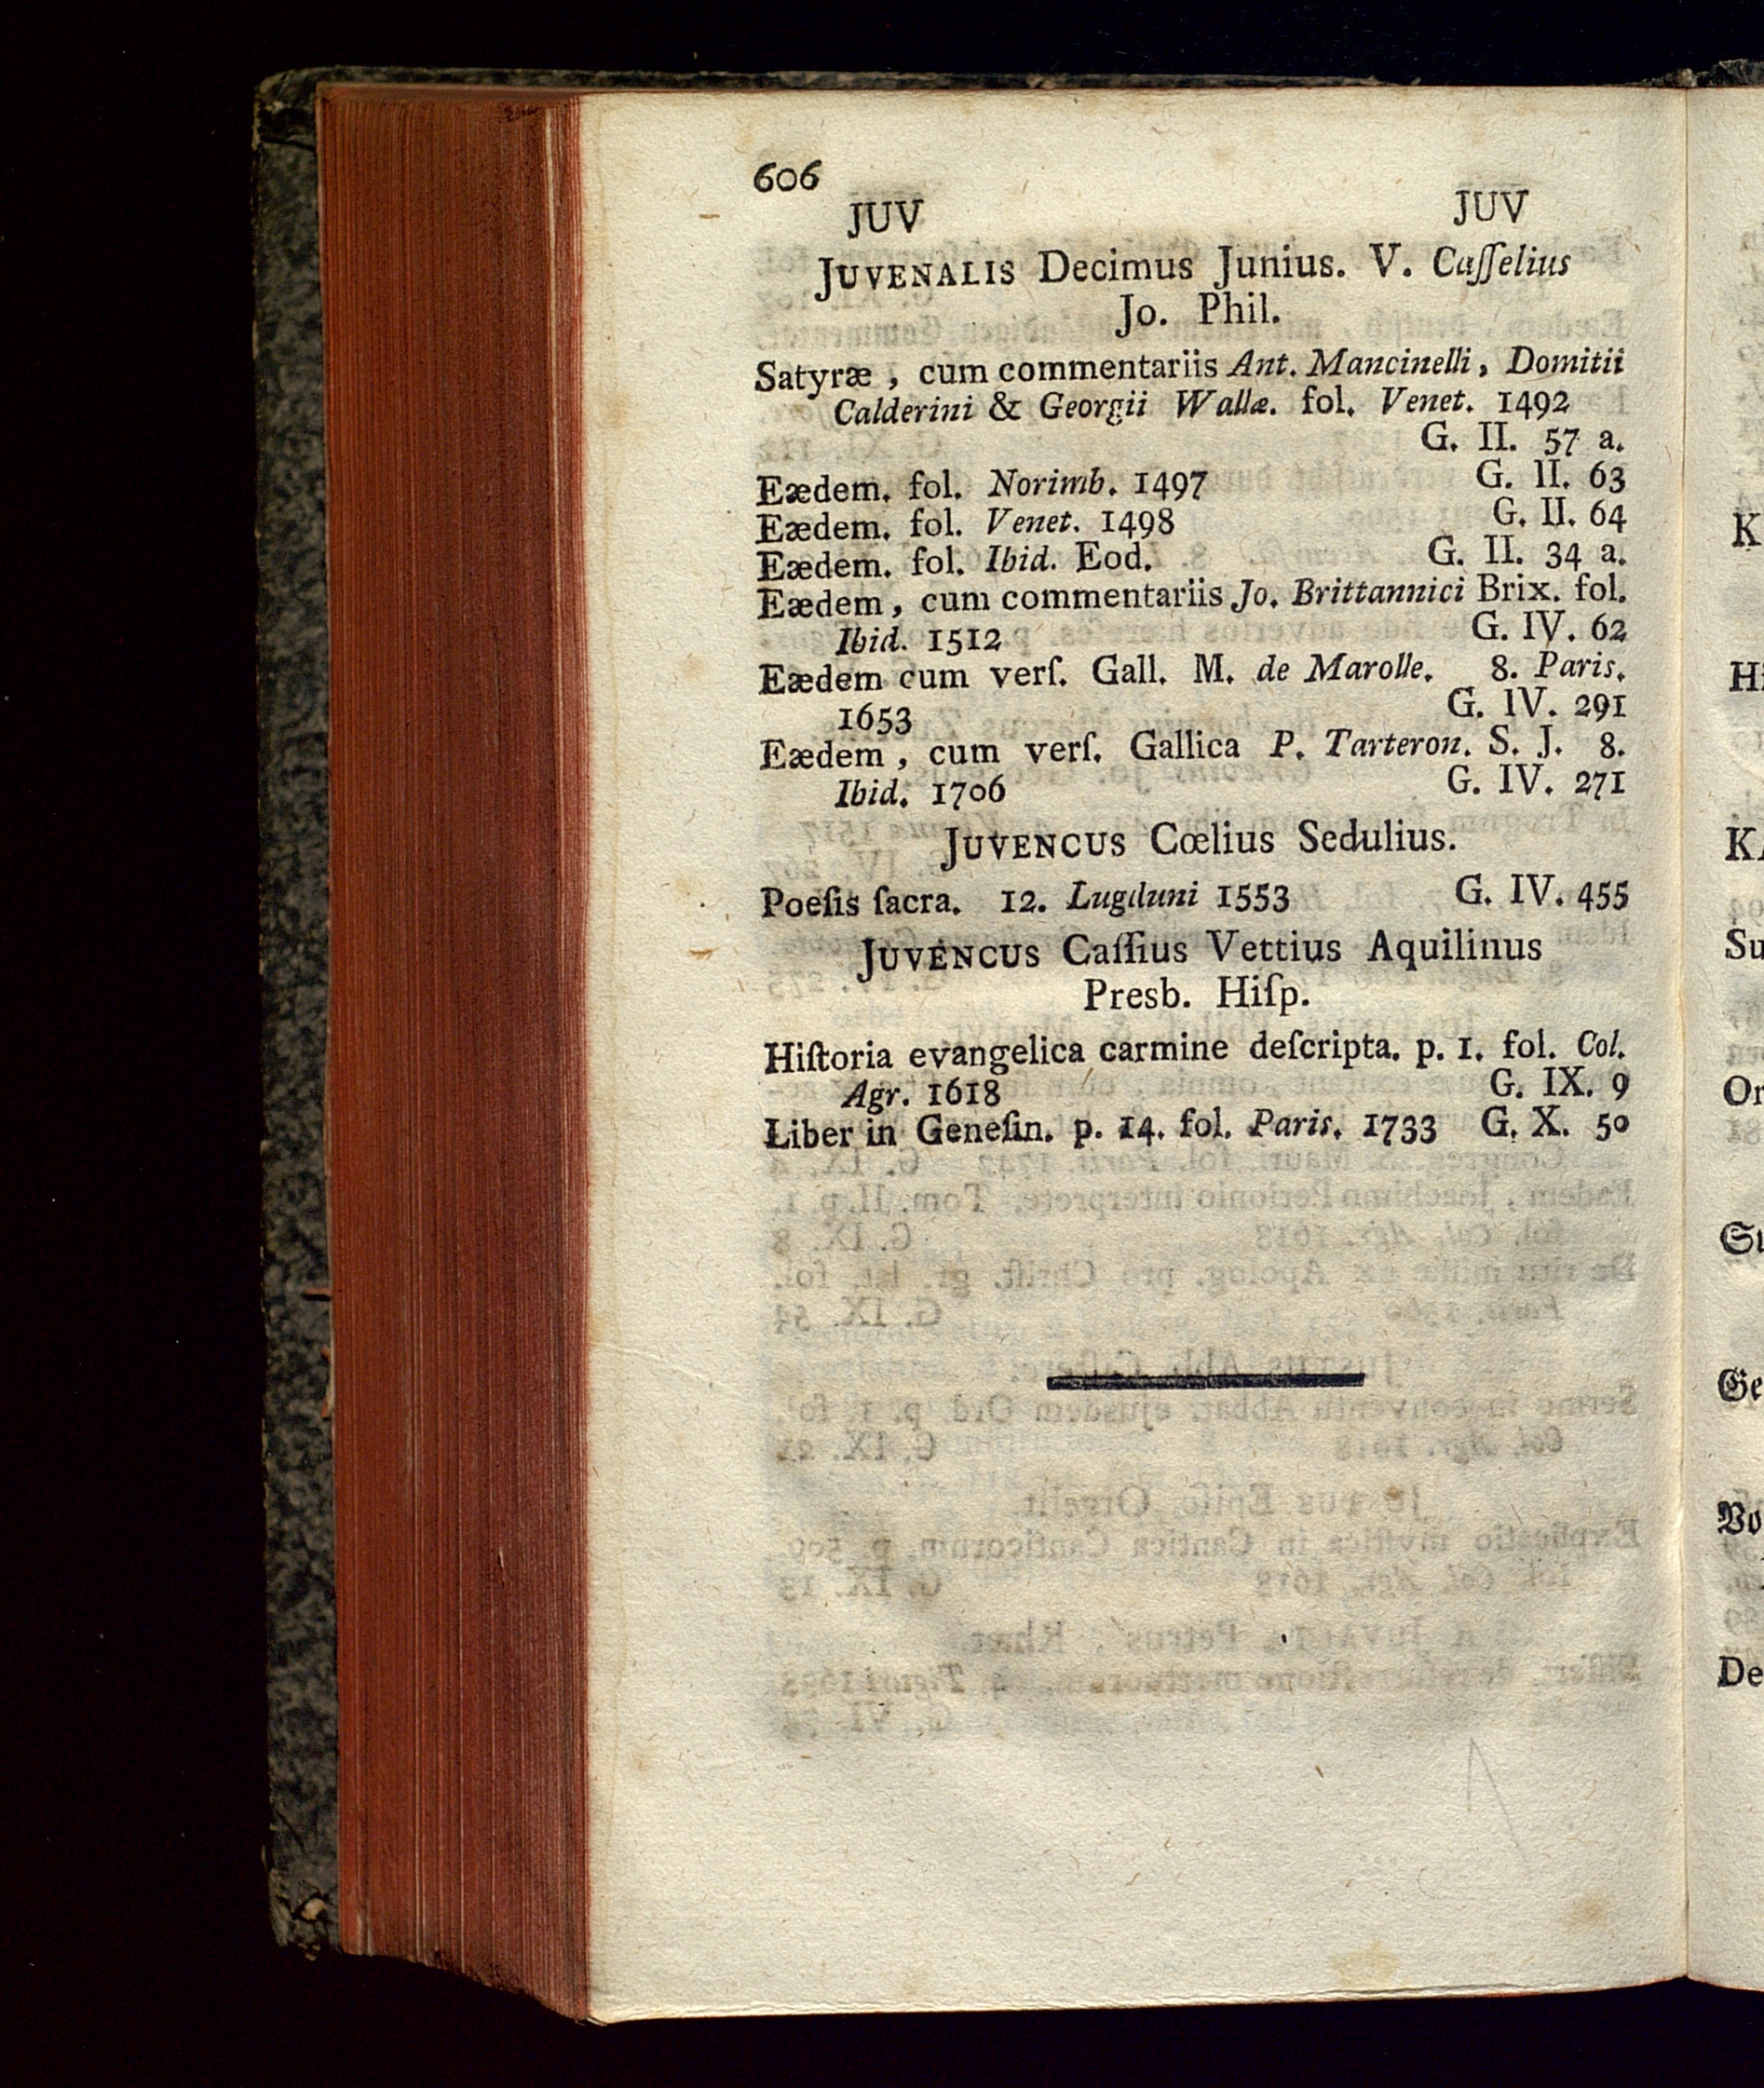 606
JUV JUV
JUVENALIS Decimus Junius. V. Caſſelius
Jo. Phil.
Satyræ, cum commentariis Ant. Mancinelli, Domitii
Calderini & Georgii Wallæ. fol. Venet. 1492
G. II. 57 a.
Eædem. fol. Norimb. 1497 G. II. 63
Eædem. fol. Venet. 1498 G. II. 64
Eædem. fol. Ibid. Eod. G. II. 34 a.
Eædem, cum commentariis Jo. Brittannici Brix. fol.
Ibid. 1512 G. IV. 62
Eædem cum verſ. Gall. M. de Marolle. 8. Paris.
1653 G. IV. 291
Eædem, cum verſ. Gallica P. Tarteron. S. J. 8.
Ibid. 1706 G. IV. 271
JUVENCUS Cœlius Sedulius.
Poeſis ſacra. 12. Lugduni 1553 G. IV. 455
JUVENCUS Caſſius Vettius Aquilinus
Presb. Hiſp.
Hiſtoria evangelica carmine deſcripta. p. 1. fol. Col.
Agr. 1618 G. IX. 9
Liber in Geneſin. p. 14. fol. Paris. 1733 G. X. 50